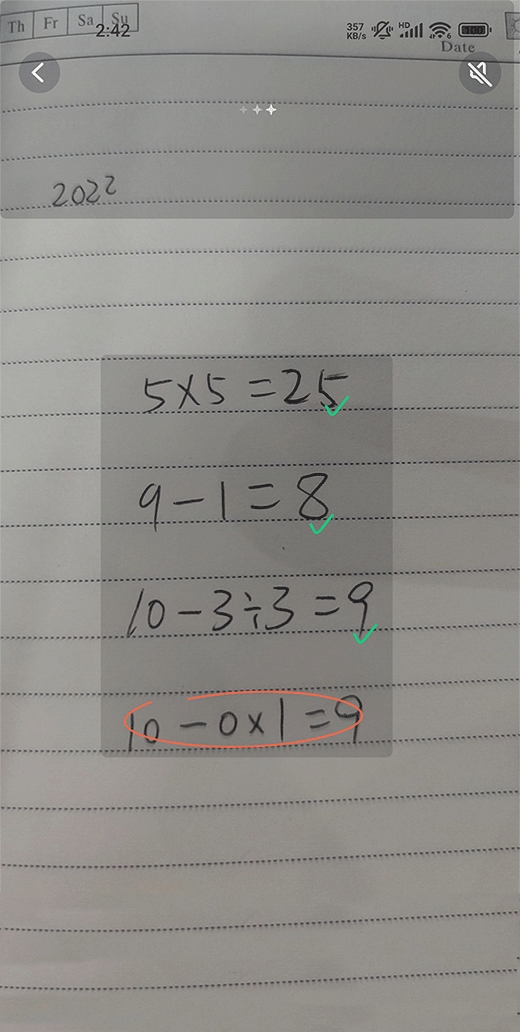 Th Fr Sa Su
2:42
357 KB/s HD 6 100
Date
2022
5×5=25
9-1=8
10-3÷3=9
10-0×1=9